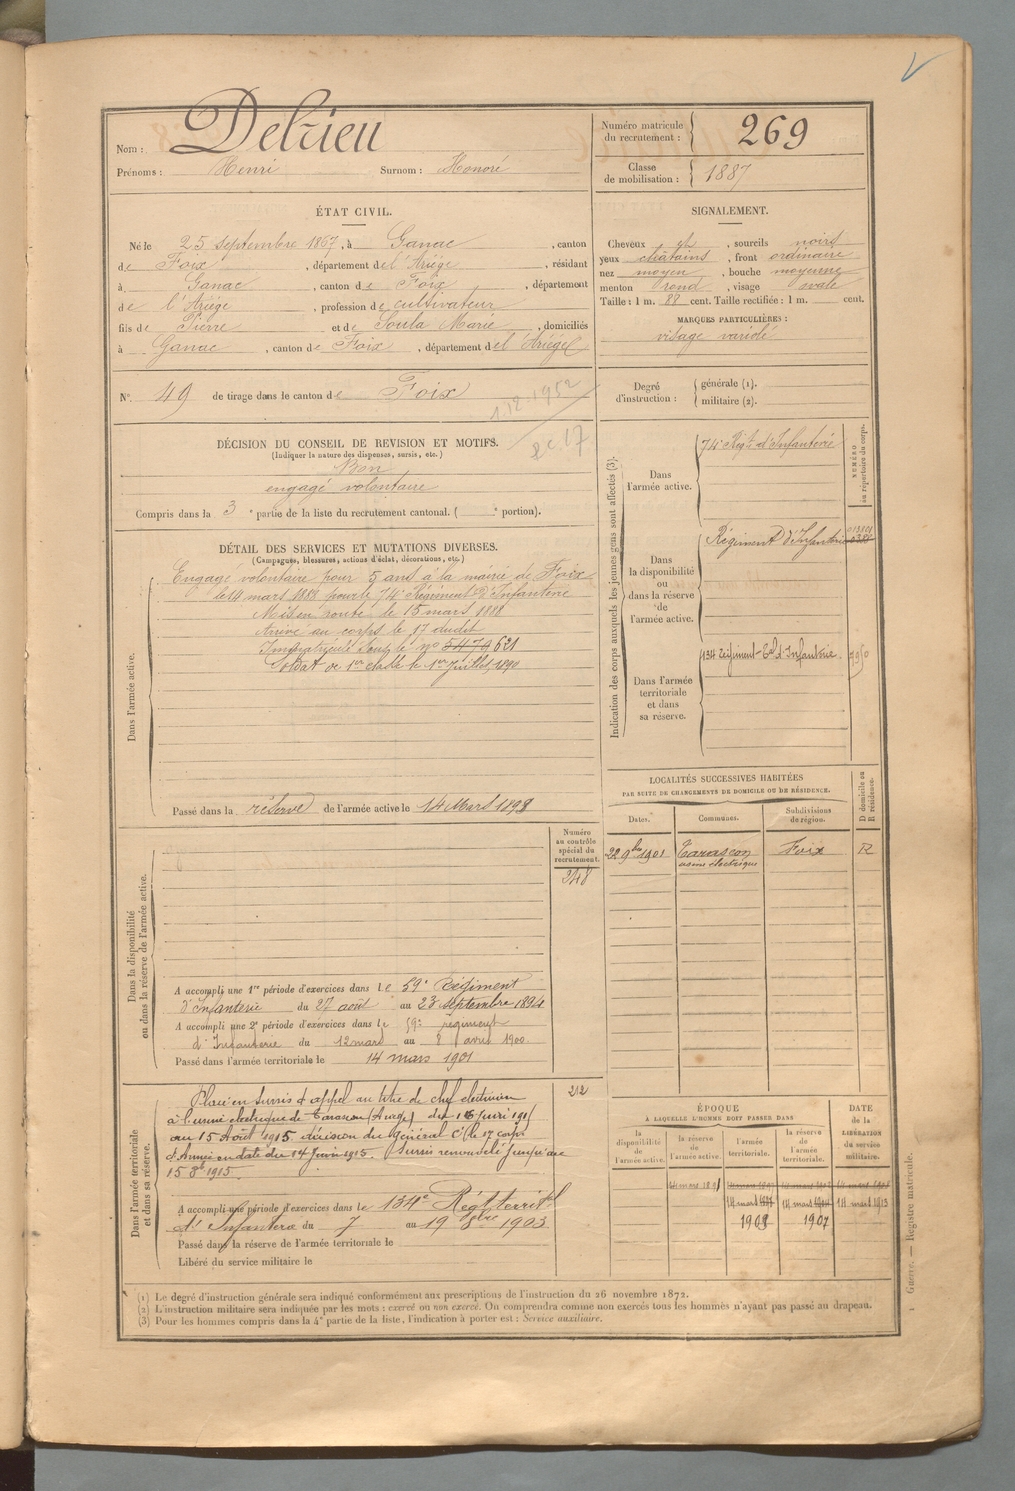 Nom : Delrieu
Prénoms : Henri Surnom : Honoré
Numéro matricule du recrutement : 269
Classe de mobilisation : 1887
ÉTAT CIVIL.
Né le 25 septembre 1867, à Ganac, canton
de Foix, département de l'Ariège, résidant
à Ganac, canton de Foix, département
de l'Ariège, profession de cultivateur
fils de Pierre et de Soula Marie, domiciliés
à Ganac, canton de Foix, département de l'Ariège
SIGNALEMENT.
Cheveux ch, sourcils noirs
yeux châtains, front ordinaire
nez moyen, bouche moyenne
menton rond, visage ovale
Taille : 1 m. 88 cent. Taille rectifiée : 1 m. cent.
MARQUES PARTICULIÈRES :
visage variolé
N° 49 de tirage dans le canton de Foix
1.12.1952
Degré d'instruction : générale (1).
militaire (2).
DÉCISION DU CONSEIL DE REVISION ET MOTIFS.
(Indiquer la nature des dispenses, sursis, etc.)
Bon
engagé volontaire
Compris dans la 3e partie de la liste du recrutement cantonal. ( e portion).
DÉTAIL DES SERVICES ET MUTATIONS DIVERSES.
(Campagnes, blessures, actions d'éclat, décorations, etc.)
Dans l'armée active.
Engagé volontaire pour 5 ans à la mairie de Foix
le 14 mars 1888 pour le 74e Régiment d'Infanterie
Mis en route le 15 mars 1888
Arrivé au corps le 17 dudit
Immatriculé sous le n° 5479 621
Soldat de 1re classe le 1er Juillet 1890
Passé dans la réserve de l'armée active le 14 Mars 1893
Indication des corps auxquels les jeunes gens sont affectés (3).
NUMÉRO au répertoire du corps.
Dans l'armée active.
74e Régt d'Infanterie
Dans la disponibilité ou dans la réserve de l'armée active.
Régiment d'Infanterie
Dans l'armée territoriale et dans sa réserve.
134 Régiment Tal d'Infanterie
LOCALITÉS SUCCESSIVES HABITÉES
PAR SUITE DE CHANGEMENTS DE DOMICILE OU DE RÉSIDENCE.
Dates. Communes. Subdivisions de région. D domicile ou R résidence.
22 9bre 1901 Tarascon usine électrique Foix R
Numéro au contrôle spécial du recrutement.
248
Dans la disponibilité ou dans la réserve de l'armée active.
A accompli une 1re période d'exercices dans le 59e Régiment
d'Infanterie du 27 août au 23 septembre 1894
A accompli une 2e période d'exercices dans le 59e régiment
d'Infanterie du 12 mars au 8 avril 1900
Passé dans l'armée territoriale le 14 mars 1901
212
Dans l'armée territoriale et dans sa réserve.
Placé en sursis d'appel au titre de chef électricien
à l'usine électrique de Tarascon (Ariège) du 16 juin 1915
au 15 Août 1915 décision du Général Ct le 17e corps
d'Armée en date du 14 juin 1915. Sursis renouvelé jusqu'au
15 8bre 1915
A accompli une période d'exercices dans le 134e Régt territal
d'Infanterie du 7 au 19 1903
Passé dans la réserve de l'armée territoriale le
Libéré du service militaire le
ÉPOQUE
A LAQUELLE L'HOMME DOIT PASSER DANS
la disponibilité de l'armée active. la réserve de l'armée active. l'armée territoriale. la réserve de l'armée territoriale. DATE de la LIBÉRATION du service militaire.
14 mars 1897 14 mars 14 mars 1913
1907
(1) Le degré d'instruction générale sera indiqué conformément aux prescriptions de l'instruction du 26 novembre 1872.
(2) L'instruction militaire sera indiquée par les mots : exercé ou non exercé. On comprendra comme non exercés tous les hommes n'ayant pas passé au drapeau.
(3) Pour les hommes compris dans la 4e partie de la liste, l'indication à porter est : Service auxiliaire.
Guerre. — Registre matricule.